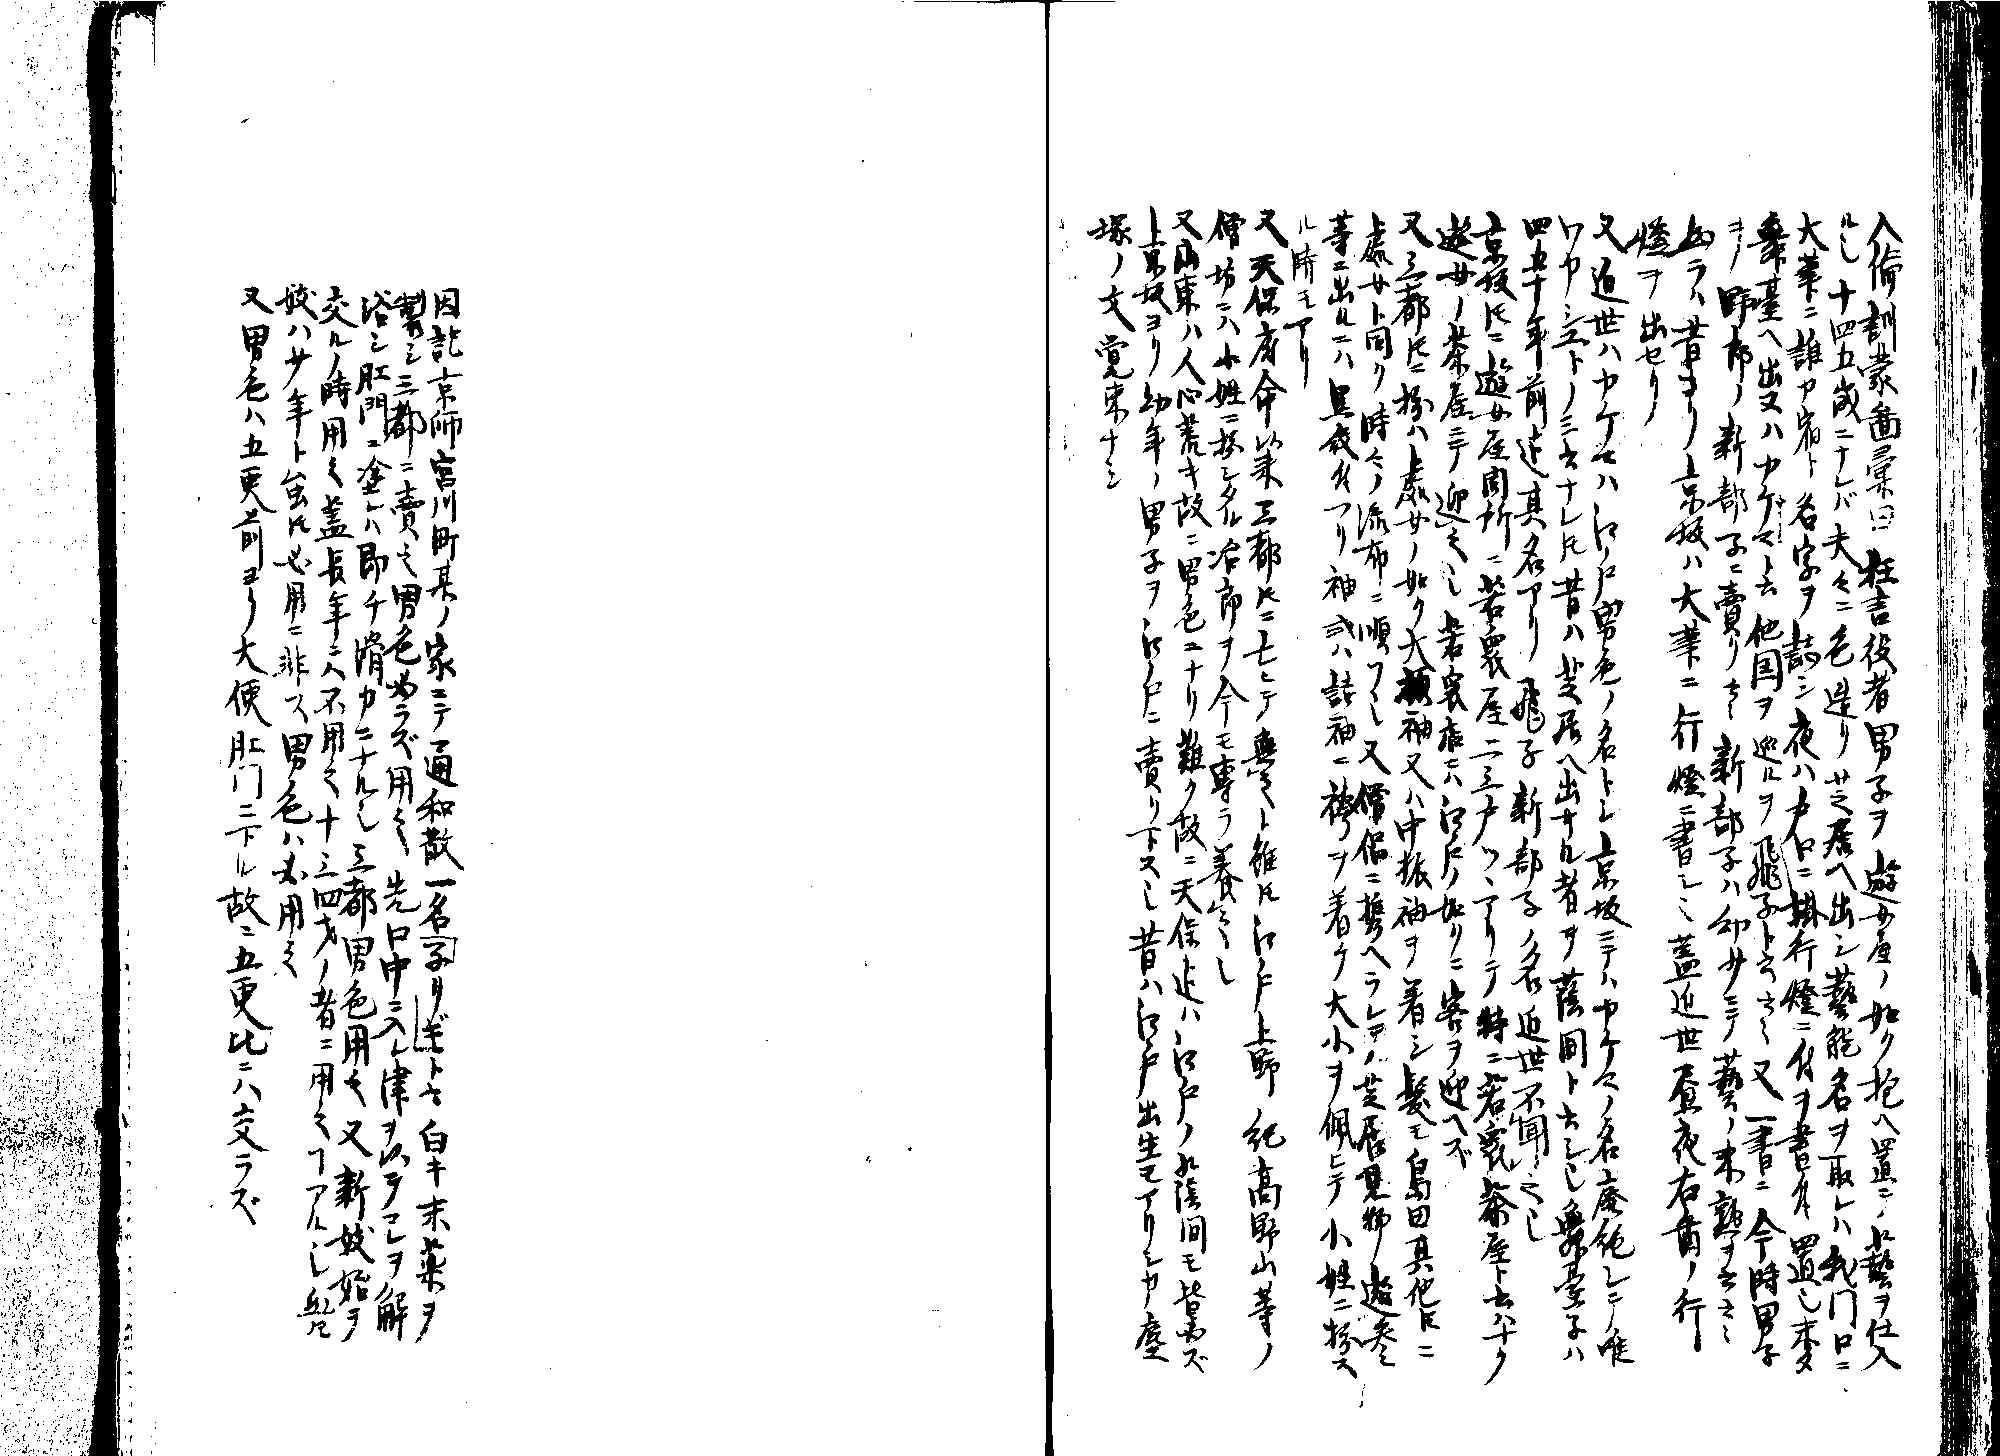 人倫訓蒙圖彙曰 狂言役者男子ヲ遊女屋ノ如ク抱ヘ置ニ 藝ヲ仕入
ルヽ 十四五歳ニナレバ夫々ニ色造リ 芝居ヘ出シ藝能名ヲ取レハ我門口ニ
大筆ニ誰カ宿ト名字ヲ誌シ夜ハ戸口ニ掛行燈ニ 書付置也 未タ
舞臺ヘ出又ハカゲマト云 他国ヲ巡ルヲ飛子ト云 又一書ニ今時男子
ヲ野郎ノ新部子ニ賣リ 新部子ハ幼少ニテ藝ノ未熟ヲ云
然ラハ昔ヨリ京坂ハ大筆ニ行燈ニ書シ 蓋近世昼夜右ノ行
燈ヲ出セリ
又近世ハカゲマハ江戸男色ノ名トシ京坂ニテハカゲマノ名廃絶シテ唯
ワカシュトノミ云ナレ𪜈昔ハ芝居ヘ出サル者ヲ蔭間ト云シ也舞臺子ハ
四五十年前迄其名アリ 飛子新部子ノ名近世不聞之也
京坂𪜈ニ遊女屋同所ニ若衆屋二三戸ツヽアリテ特ニ若衆茶屋ト云ハナク
遊女ノ茶屋ニテ迎之也 若衆店ハ江戸ノ如クニ客ヲ迎ヘズ
又三都𪜈ニ扮ハ處女ノ如ク大振袖又ハ中振袖ヲ着シ髪モ島田其他𪜈ニ
處女ト同ク時々ノ流布ニ順フ也 又僧侶ニ携ヘラレテ芝居見物遊参
等ニ出ルニハ黒 アリ袖 或ハ詰袖ニ袴ヲ着ケ大小ヲ佩ヒテ小姓ニ扮ス
ル時モアリ
又天保府命以来三都𪜈ニ亡シテ無之ト雖𪜈江戸上野 紀高野山等ノ
僧坊ニハ小姓ニ扮シタル冶郎ヲ今モ專ラ養之也
又山東ハ人心荒キ故ニ男色ニナリ難ク故ニ天保迄ハ江戸ノ蔭間モ皆必ズ
京坂ヨリ幼年ノ男子ヲ江戸ニ賣リ下ス也 昔ハ江戸出生モアリシカ 鹿
塚ノ文覚束ナシ
因記京師宮川町某ノ家ニテ通和散 一名子リギト云 白キ末薬ヲ
製シ三都ニ賣之男色必ラズ用之 先口中ニ入レ津ヲ以テコレヲ解
浴シ肛門ニ塗レハ即チ滑カニナル也 三都男色用之 又新妓始ヲ
交ルノ時用之蓋長年ニハ不用之十三四才ノ者ニ用之コアル也 然𪜈
妓ハ少年ト虽𪜈必用ニ非ス男色ハ必用之
又男色ハ五更前ヨリ大便肛門ニ下ル故ニ五更比ニハ交ラズ